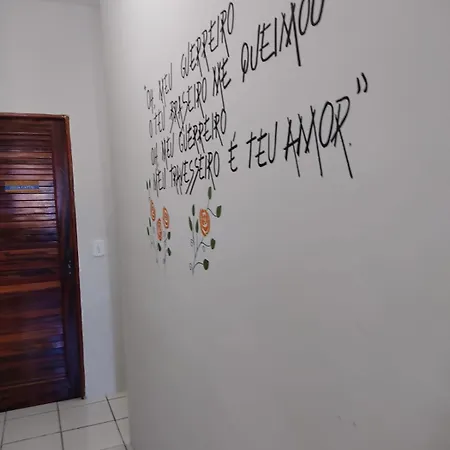 "OH, MEU GUERREIRO
O TEU BRASEIRO ME QUEIMOU
OH MEU GUERREIRO
MEU TRAVESSEIRO É TEU AMOR."